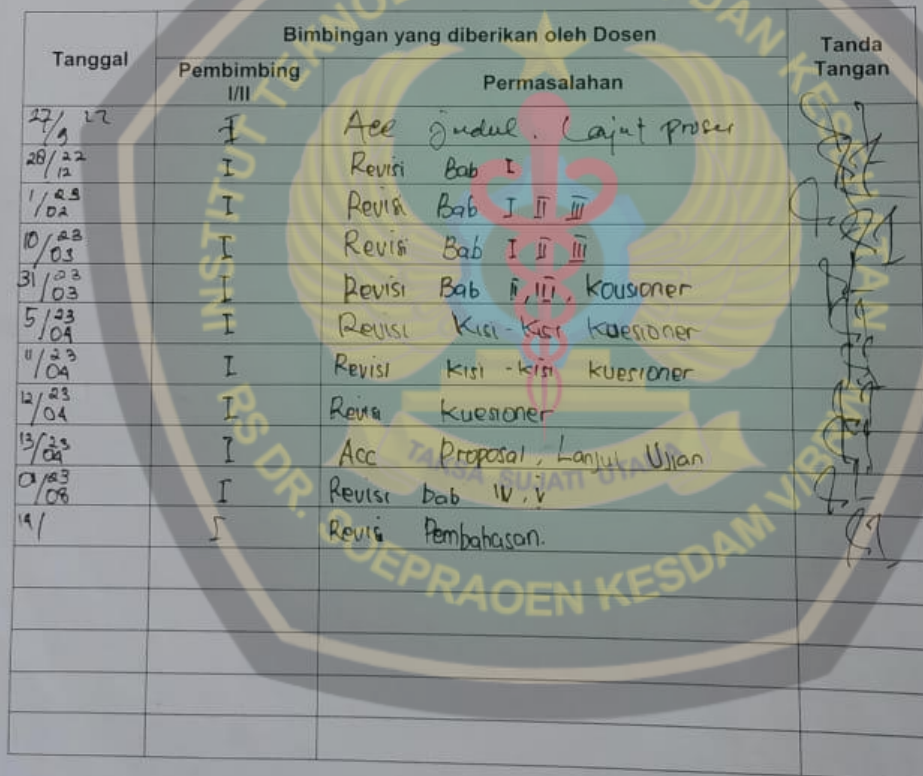 Tanggal Bimbingan yang diberikan oleh Dosen Tanda Tangan
Pembimbing I/II Permasalahan
27/9 22 I Acc judul. Lanjut proses
28/12 22 I Revisi Bab I
1/02 23 I Revisi Bab I II III
10/03 23 I Revisi Bab I II III
31/03 23 I Revisi Bab II, III, Kousioner
5/04 23 I Revisi Kisi-Kisi Kuesioner
11/04 23 I Revisi Kisi-kisi kuesioner
12/04 23 I Revisi kuesioner
13/04 23 I Acc Proposal, Lanjut Ujian
/08 23 I Revisi bab IV, V
14/ I Revisi Pembahasan.
INSTITUT
RS DR. SOEPRAOEN KESDAM